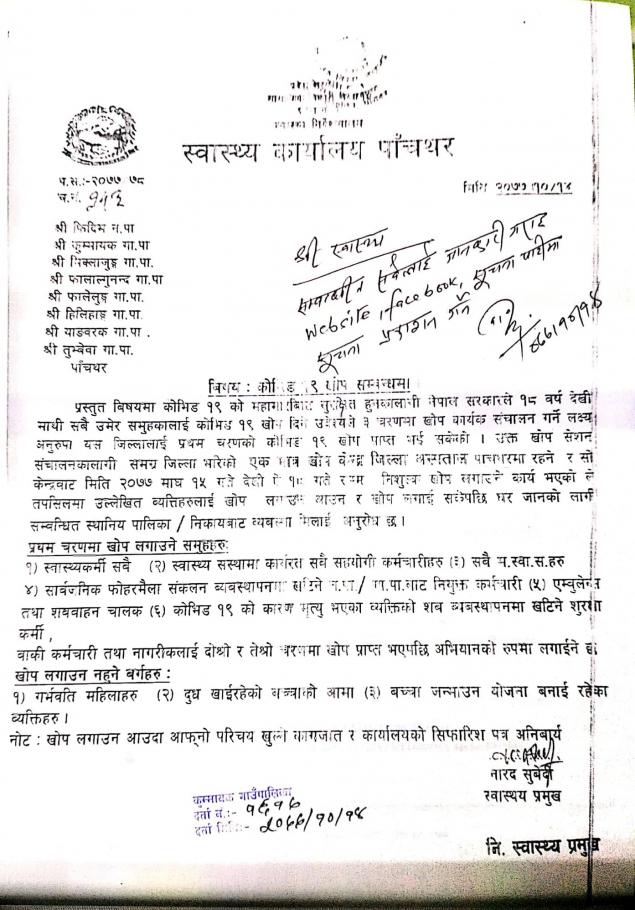 स्वास्थ्य कार्यालय पाँचथर
प.स.:-२०७७ ७८
च.नं.
मिति २०७७/१०/१४
श्री फिदिम न.पा
श्री कुम्मायक गा.पा
श्री मिक्लाजुङ्ग गा.पा.
श्री फालाल्गुनन्द गा.पा
श्री फालेलुङ्ग गा.पा.
श्री हिलिहाङ्ग गा.पा.
श्री याङवरक गा.पा.
श्री तुम्बेवा गा.पा.
पाँचथर
श्री स्वास्थ्य
जानकारी गराई
website, facebook, सूचना पाटीमा
सूचना प्रकाशन गर्ने
विषय: कोभिड १९ खोप सम्बन्धमा।
प्रस्तुत बिषयमा कोभिड १९ को सुरक्षित हुनकालागी नेपाल सरकारले १८ बर्ष देखी
माथी सबै उमेर समुहकालाई कोभिड १९ खोप दिने उद्देश्यले ३ चरणमा खोप कार्यक संचालन गर्ने लक्ष्य
अनुरुपा यस जिल्लालाई प्रथम चरणको कोभिड १९ खोप प्राप्त भई सकेको । उक्त खोप सेशन
संचालनकालागी समग्र जिल्ला भरिको एक मात्र खोप केन्द्र जिल्ला अस्पताल पाँचथरमा रहने र सो
केन्द्रबाट मिति २०७७ माघ १५ गते देखी गते निशुल्क खोप लगाउने कार्य भएको ले
तपसिलमा उल्लेखित ब्यक्तिहरुलाई खोप लगाउन आउन र खोप लगाई सकेपछि घर जानको लागी
सम्बन्धित स्थानिय पालिका / निकायबाट ब्यवस्था मिलाई अनुरोध छ।
प्रथम चरणमा खोप लगाउने समुहहरु:
१) स्वास्थ्यकर्मी सबै (२) स्वास्थ्य संस्थामा कार्यरत सबै सहयोगी कर्मचारीहरु (३) सबै म.स्वा.स.हरु
४) सार्वजनिक फोहरमैला संकलन ब्यवस्थापनमा खटिने न.पा./ गा.पा.बाट नियुक्त कर्मचारी (५) एम्वुलेन्स
तथा शबवाहन चालक (६) कोभिड १९ को कारण मृत्यु भएका ब्यक्तिको शब ब्यवस्थापनमा खटिने शुरक्षा
कर्मी,
बाकी कर्मचारी तथा नागरीकलाई दोश्रो र तेश्रो चरणमा खोप प्राप्त भएपछि अभियानको रुपमा लगाईने छ।
खोप लगाउन नहुने बर्गहरु :
१) गर्भवति महिलाहरु (२) दुध खाईरहेको बच्चाको आमा (३) बच्चा जन्माउन योजना बनाई रहेका
ब्यक्तिहरु ।
नोट : खोप लगाउन आउदा आफ्नो परिचय खुल्ने कागजात र कार्यालयको सिफारिश पत्र अनिबार्य
नारद सुबेदी
स्वास्थय प्रमुख
कुम्मायक गाउँपालिका
दर्ता नं.:- १९१६
दर्ता मिति:- २०७७/१०/१४
नि. स्वास्थ्य प्रमुख